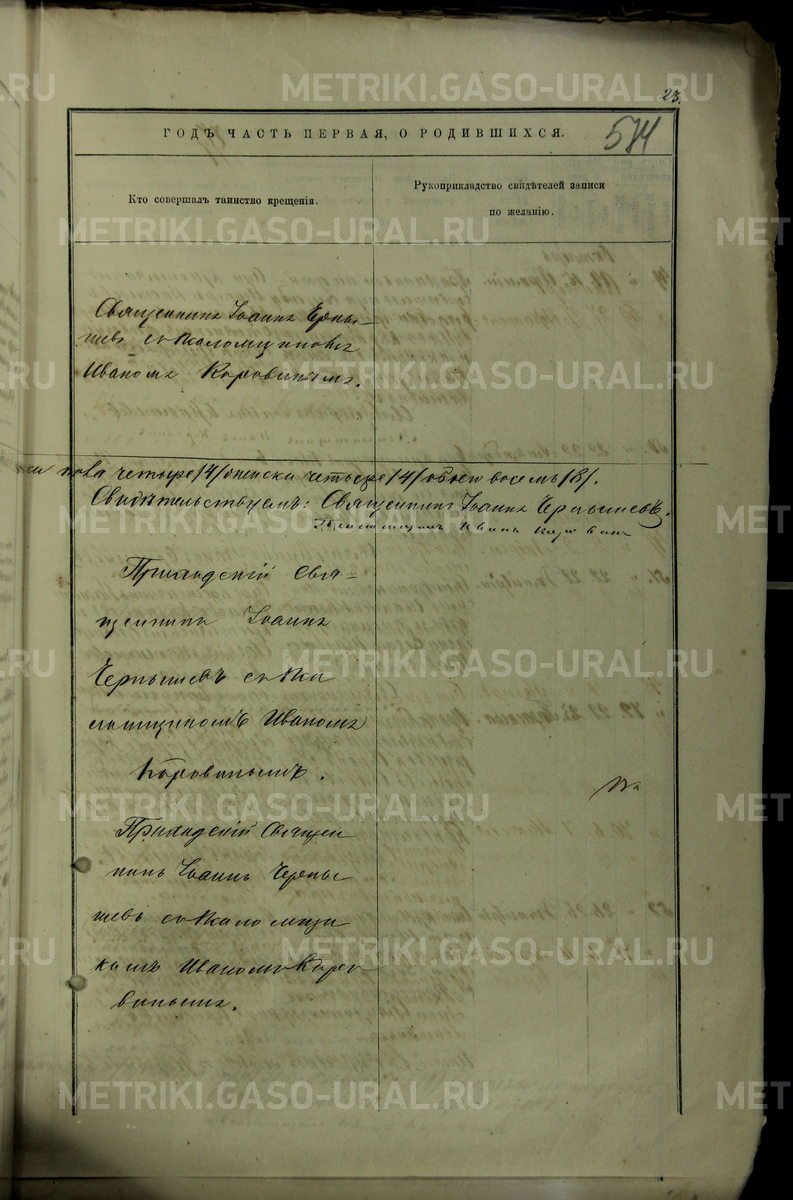 23.
ГОДЪ ЧАСТЬ ПЕРВАЯ, О РОДИВШИХСЯ.
574
Кто совершалъ таинство крещенія.
Рукоприкладство свидѣтелей записи
по желанію.
Священникъ Іоаннъ Черны-
шевъ съ псаломщикомъ
Иваномъ Коровинымъ.
пола четыре /4/ женска четыре /4/ обоег восемь /8/.
Свидѣтельствуемъ: Священникъ Іоаннъ Чернышевъ.
Псаломщикъ Иванъ Коровинъ
Приходскій Свя-
щенникъ Іоаннъ
Чернышевъ съ пса
ломщикомъ Иваномъ
Коровинымъ.
Приходскій Священ
никъ Іоаннъ Черны
шевъ съ псаломщи
комъ Иваномъ Коро
винымъ.
METRIKI.GASO-URAL.RU